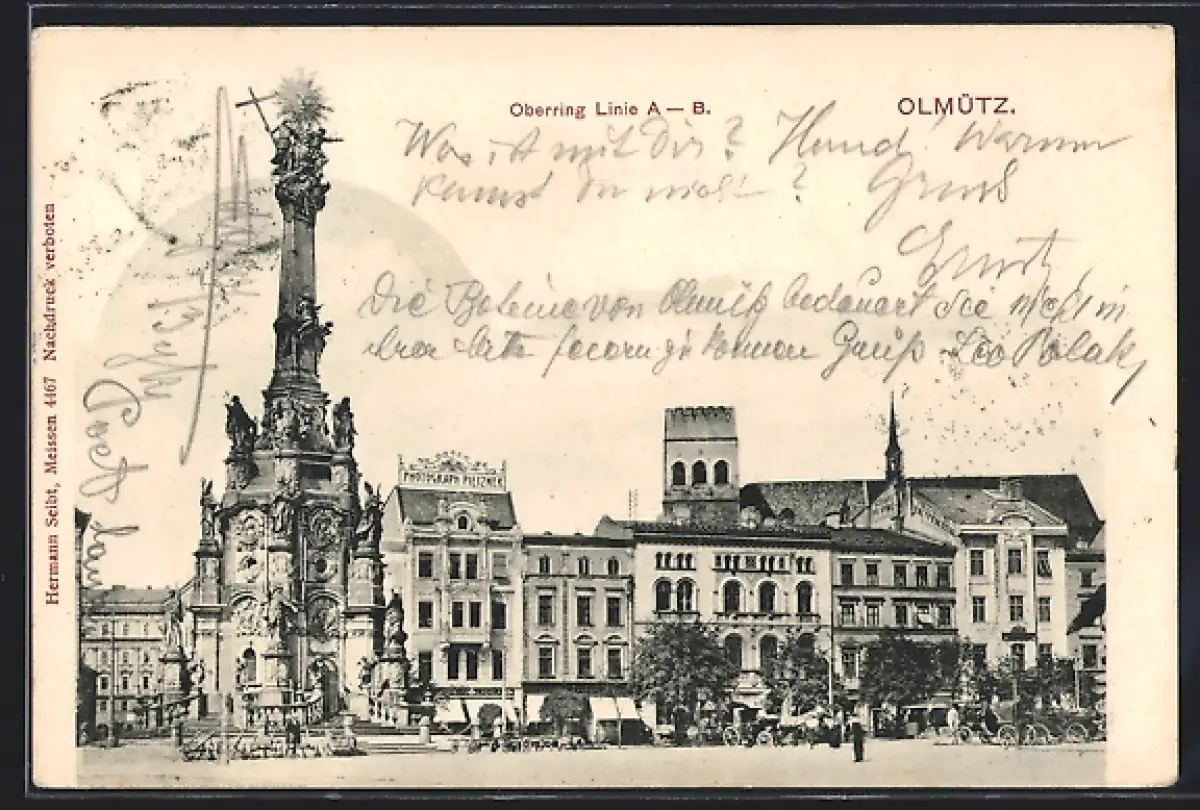 Oberring Linie A — B.
OLMÜTZ.
Was ist mit Dir? Hund! Warum
kannst du nicht? Gruß
Ernst
Die Boheme von Olmütz bedauert Sie nicht in
ihrer Mitte zu können Gruß Leo Polak
Hermann Seibt, Meissen 4467 Nachdruck verboten
PHOTOGRAPH PIETZNER